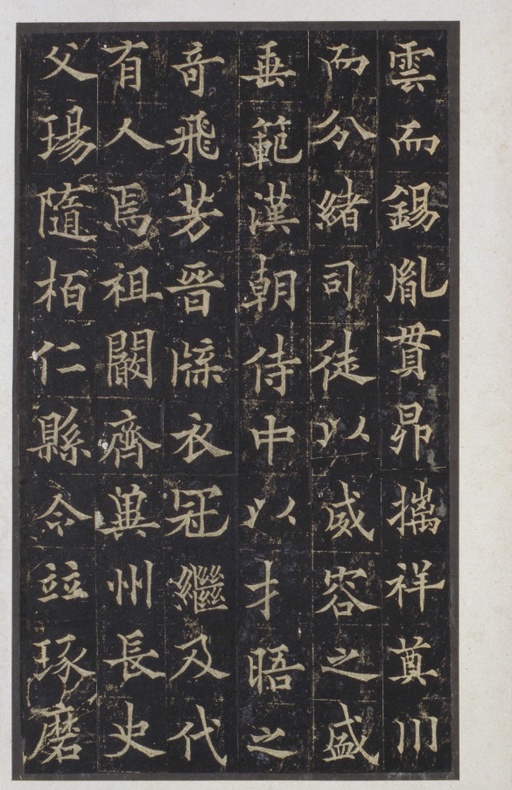 雲而錫胤貫昴攜祥奠川
而分緒司徒以威容之盛
垂範漢朝侍中以才晤之
奇飛芳晉牒衣冠繼及代
有人焉祖闞齊冀州長史
父瑒隨栢仁縣令竝琢磨